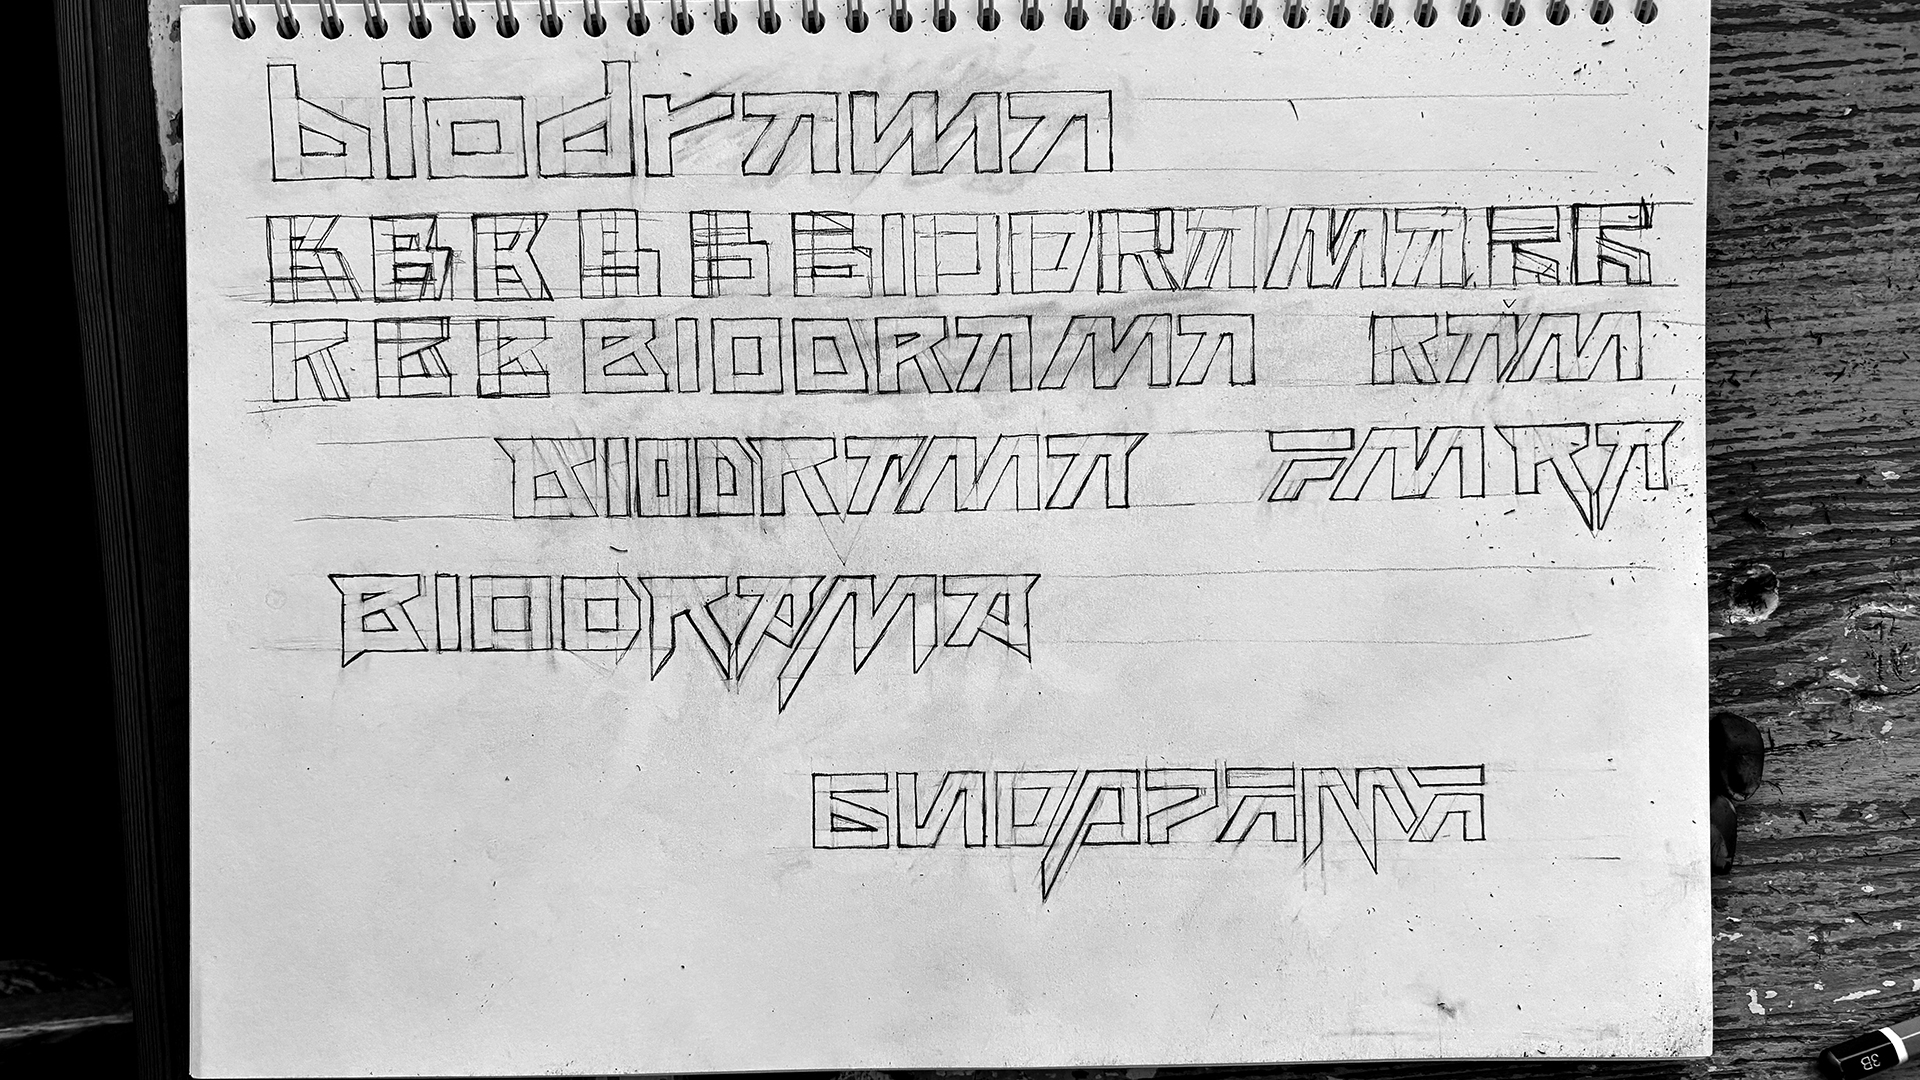 biodrama
B B B B B B BIODRAMA R R
R B B BIODRAMA RAM
BIODRAMA AM RA
BIODRAMA
БИОДРАМА
3B